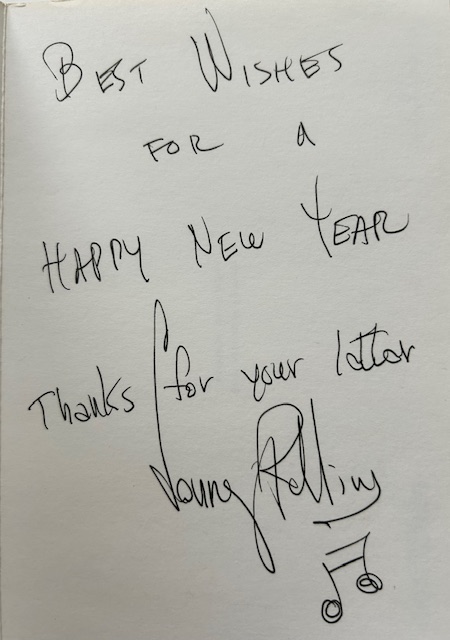 BEST WISHES
FOR A
HAPPY NEW YEAR
Thanks for your letter
Sonny Rollins